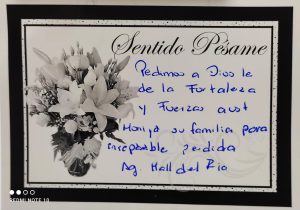 Sentido Pésame
Pedimos a Dios le
de la Fortaleza
y Fuerzas a ust
Monja su familia por
irreparable perdida
Ag. Mall del Rio
REDMI NOTE 10